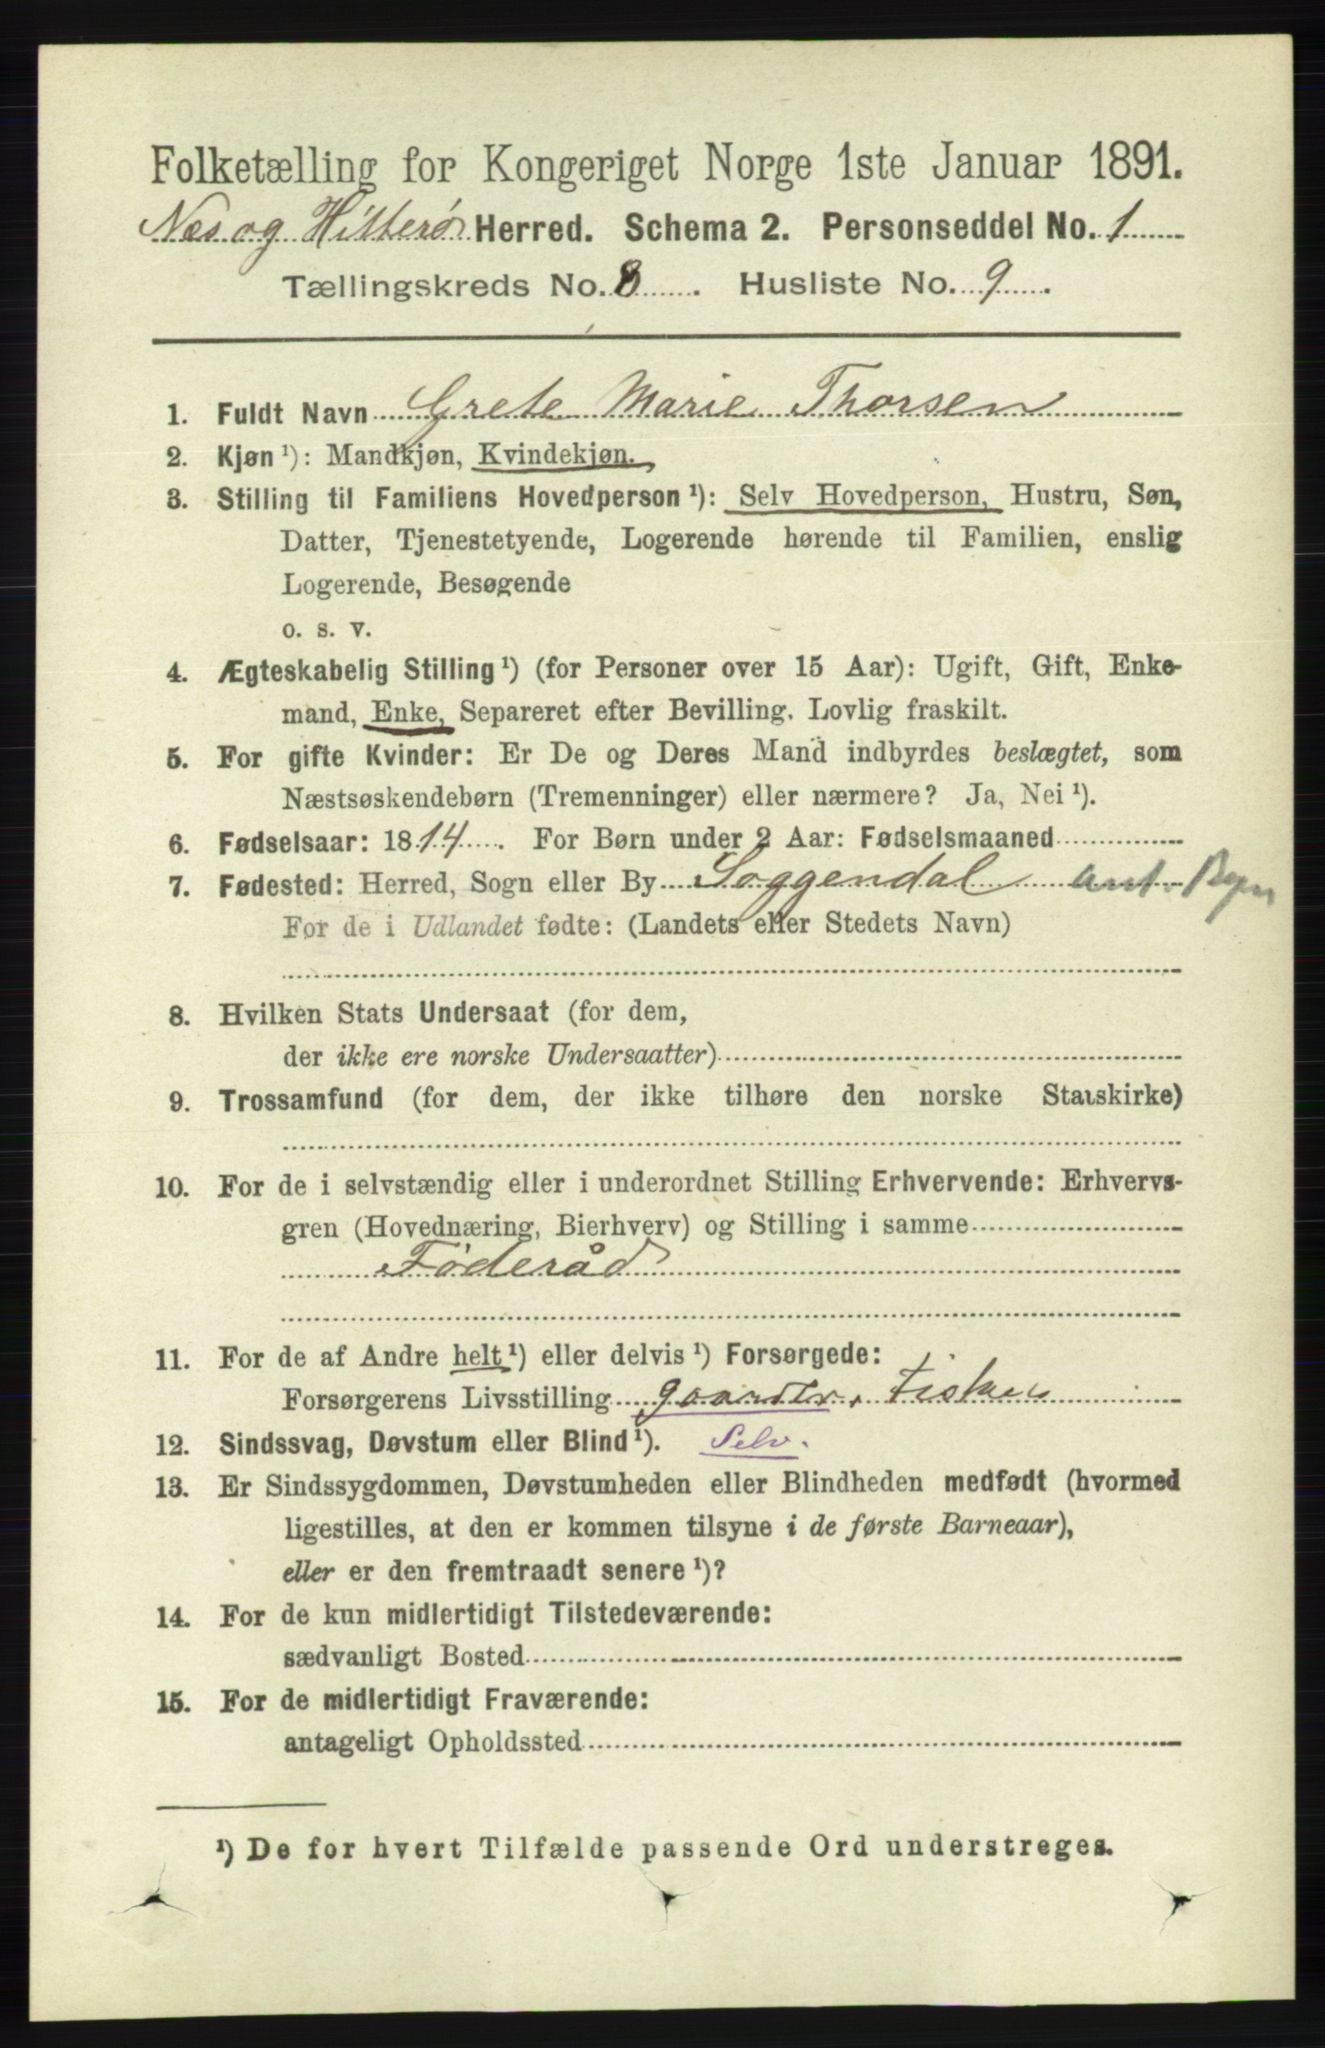 Folketælling for Kongeriget Norge 1ste Januar 1891.
Næs og Hitterø Herred. Schema 2. Personseddel No. 1
Tællingskreds No. 8. Husliste No. 9.
1. Fuldt Navn Grete Marie Thorsen
2. Kjøn ¹): Mandkjøn, Kvindekjøn.
3. Stilling til Familiens Hovedperson ¹): Selv Hovedperson, Hustru, Søn,
Datter, Tjenestetyende, Logerende hørende til Familien, enslig
Logerende, Besøgende
o. s. v.
4. Ægteskabelig Stilling ¹) (for Personer over 15 Aar): Ugift, Gift, Enke-
mand, Enke, Separeret efter Bevilling. Lovlig fraskilt.
5. For gifte Kvinder: Er De og Deres Mand indbyrdes beslægtet, som
Næstsøskendebørn (Tremenninger) eller nærmere? Ja, Nei ¹).
6. Fødselsaar: 1814. For Børn under 2 Aar: Fødselsmaaned
7. Fødested: Herred, Sogn eller By Soggendal ant.
For de i Udlandet fødte: (Landets eller Stedets Navn)
8. Hvilken Stats Undersaat (for dem,
der ikke ere norske Undersaatter)
9. Trossamfund (for dem, der ikke tilhøre den norske Statskirke)
10. For de i selvstændig eller i underordnet Stilling Erhvervende: Erhvervs-
gren (Hovednæring, Bierhverv) og Stilling i samme
Føderåd
11. For de af Andre helt ¹) eller delvis ¹) Forsørgede:
Forsørgerens Livsstilling gaardbr. Fisker
12. Sindssvag, Døvstum eller Blind ¹). Selv.
13. Er Sindssygdommen, Døvstumheden eller Blindheden medfødt (hvormed
ligestilles, at den er kommen tilsyne i de første Barneaar),
eller er den fremtraadt senere ¹)?
14. For de kun midlertidigt Tilstedeværende:
sædvanligt Bosted
15. For de midlertidigt Fraværende:
antageligt Opholdssted
¹) De for hvert Tilfælde passende Ord understreges.